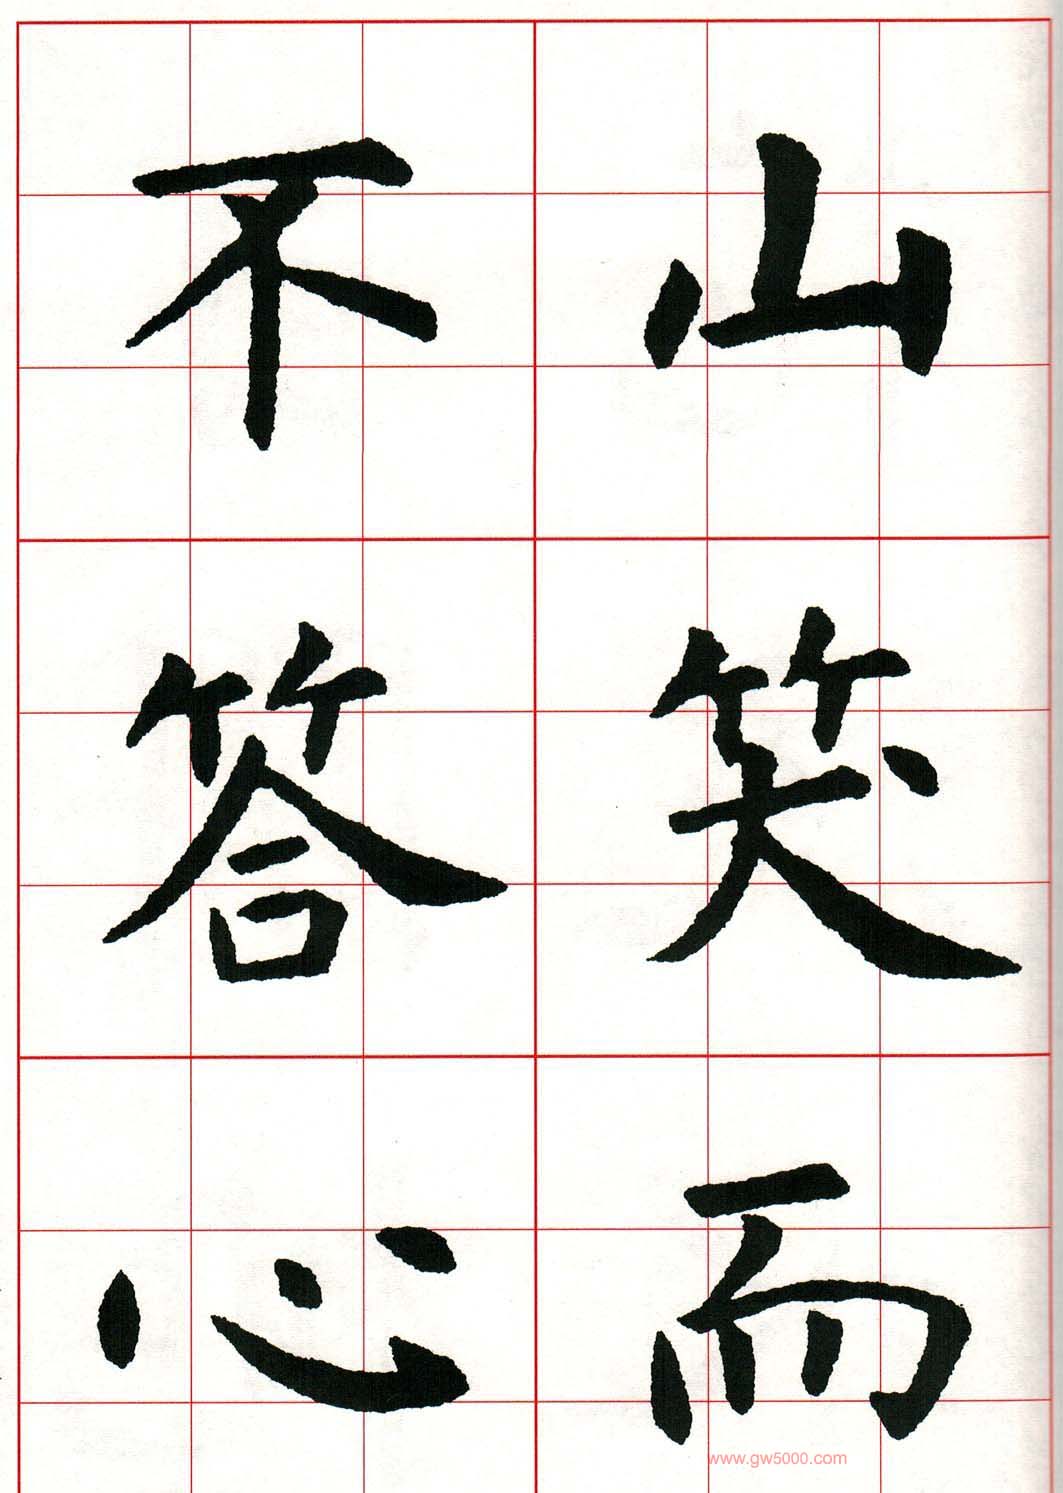 山笑而
不答心
www.gw5000.com